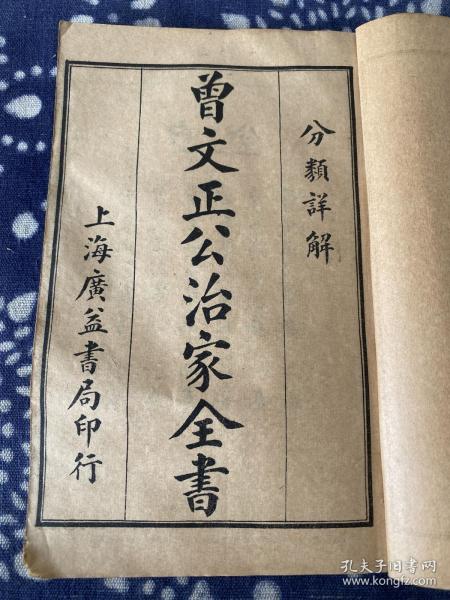 分類詳解
曾文正公治家全書
上海廣益書局印行
孔夫子旧书网
www.kongfz.com